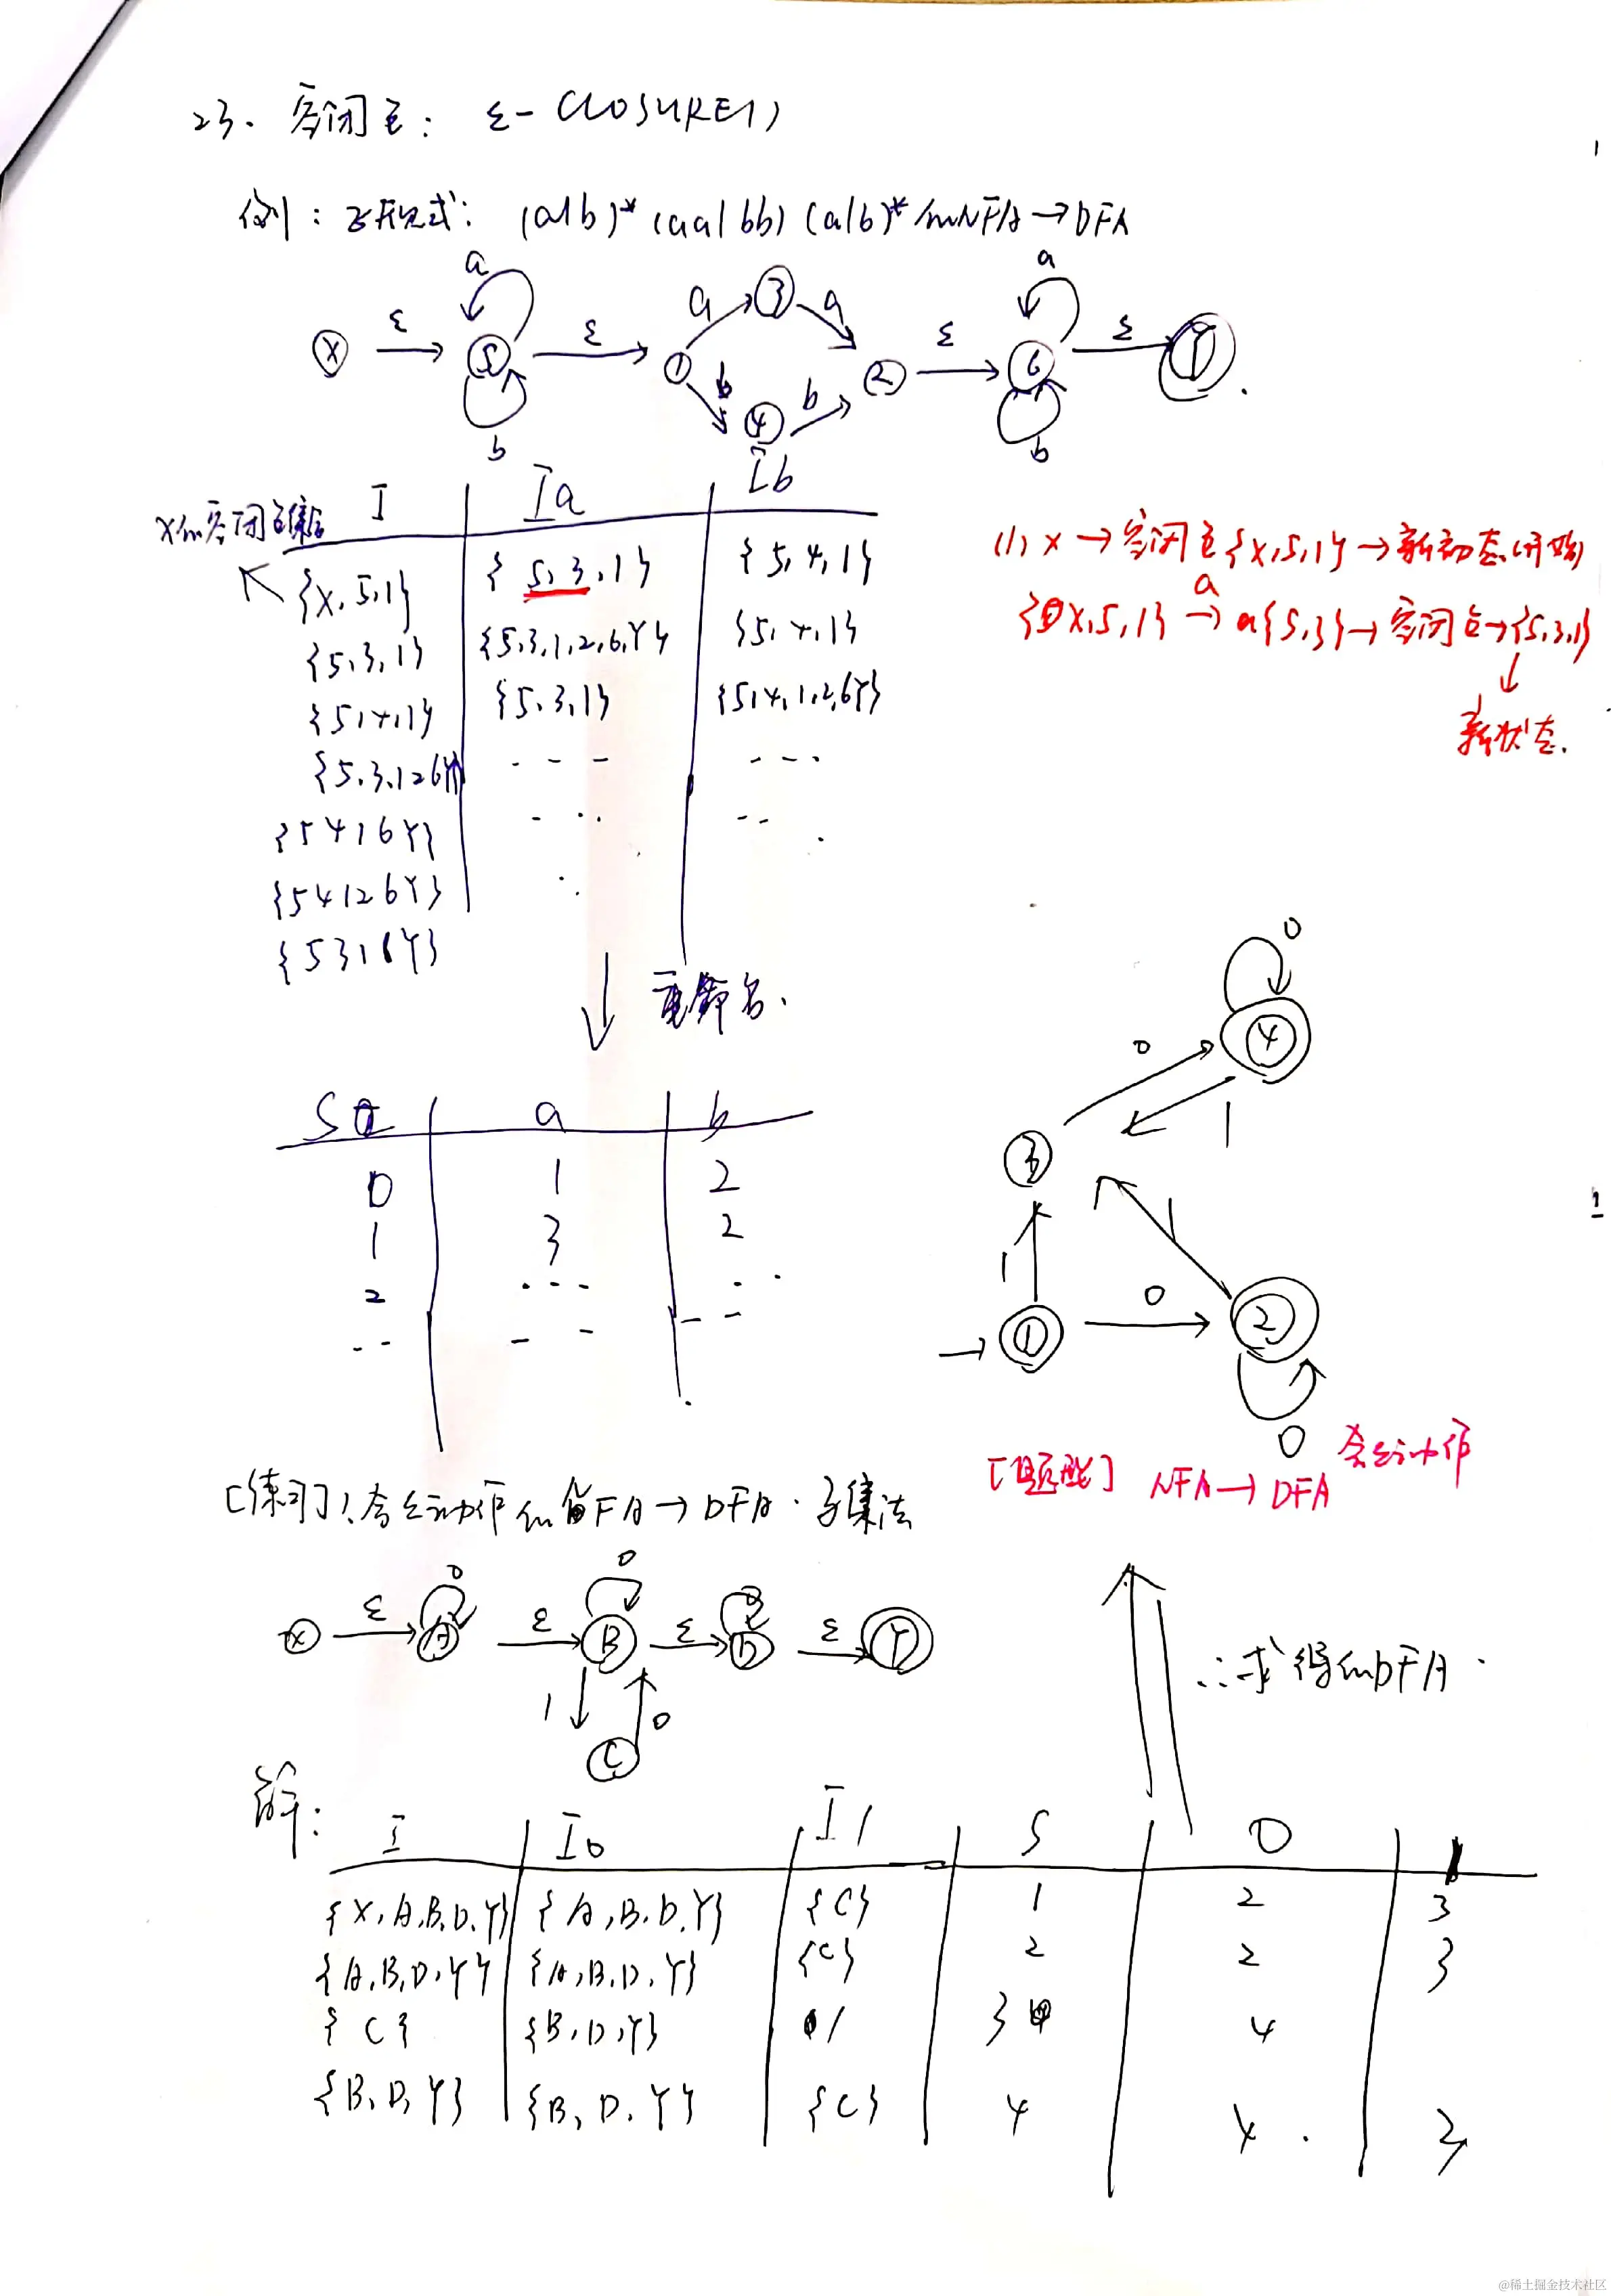 23. 空闭包: ε-CLOSURE( )
例: 正规式: (a|b)* (aa|bb) (a|b)* 的NFA→DFA
a a
ε ε a 3 a ε ε
X 5 1 2 6 Y
b 4 b
b b
X的空闭包集合 I Ia Ib
{X,5,1} {5,3,1} {5,4,1}
{5,3,1} {5,3,1,2,6,Y} {5,4,1}
{5,4,1} {5,3,1} {5,4,1,2,6Y}
{5,3,126Y} --- ---
{5416Y} -·· --
{54126Y}
{5316Y}
(1) x→空闭包{x,5,1}→新初态(开始)
{x,5,1} a→ a{5,3}→空闭包→{5,3,1}
新状态.
重命名.
S a b
0 1 2
1 3 2
2 ··· ··
-- -- --
0
4
0 1
3
1 1
1 0 2
0
[题型] NFA→DFA 含ε动作
[练习]: 含ε动作的FA→DFA. 子集法
ε 0 ε 0 ε ε
X A B D Y
1 0
C
∴求得的DFA.
解:
I I0 I1 S 0 1
{X,A,B,D,Y} {A,B,D,Y} {C} 1 2 3
{A,B,D,Y} {A,B,D,Y} {C} 2 2 3
{C} {B,D,Y} / 3 4
{B,D,Y} {B,D,Y} {C} 4 4. 3
@稀土掘金技术社区